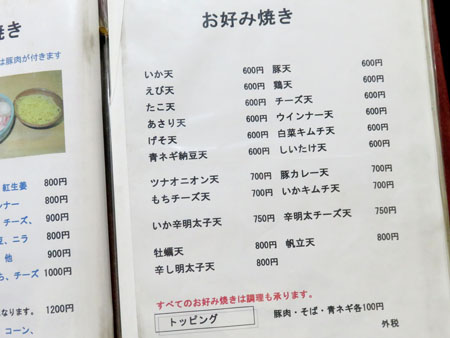 焼き
は豚肉が付きます
紅生姜 800円
ンナー 800円
チーズ、 900円
、ニラ 900円
他 900円
ち、チーズ 1000円
なります。 1200円
コーン、
お好み焼き
いか天 600円 豚天 600円
えび天 600円 鶏天 600円
たこ天 600円 チーズ天 600円
あさり天 600円 ウインナー天 600円
げそ天 600円 白菜キムチ天 600円
青ネギ納豆天 600円 しいたけ天 600円
ツナオニオン天 700円 豚カレー天 700円
もちチーズ天 700円 いかキムチ天 700円
いか辛明太子天 750円 辛明太チーズ天 750円
牡蠣天 800円 帆立天 800円
辛し明太子天 800円
すべてのお好み焼きは調理も承ります。
トッピング 豚肉・そば・青ネギ各100円
外税